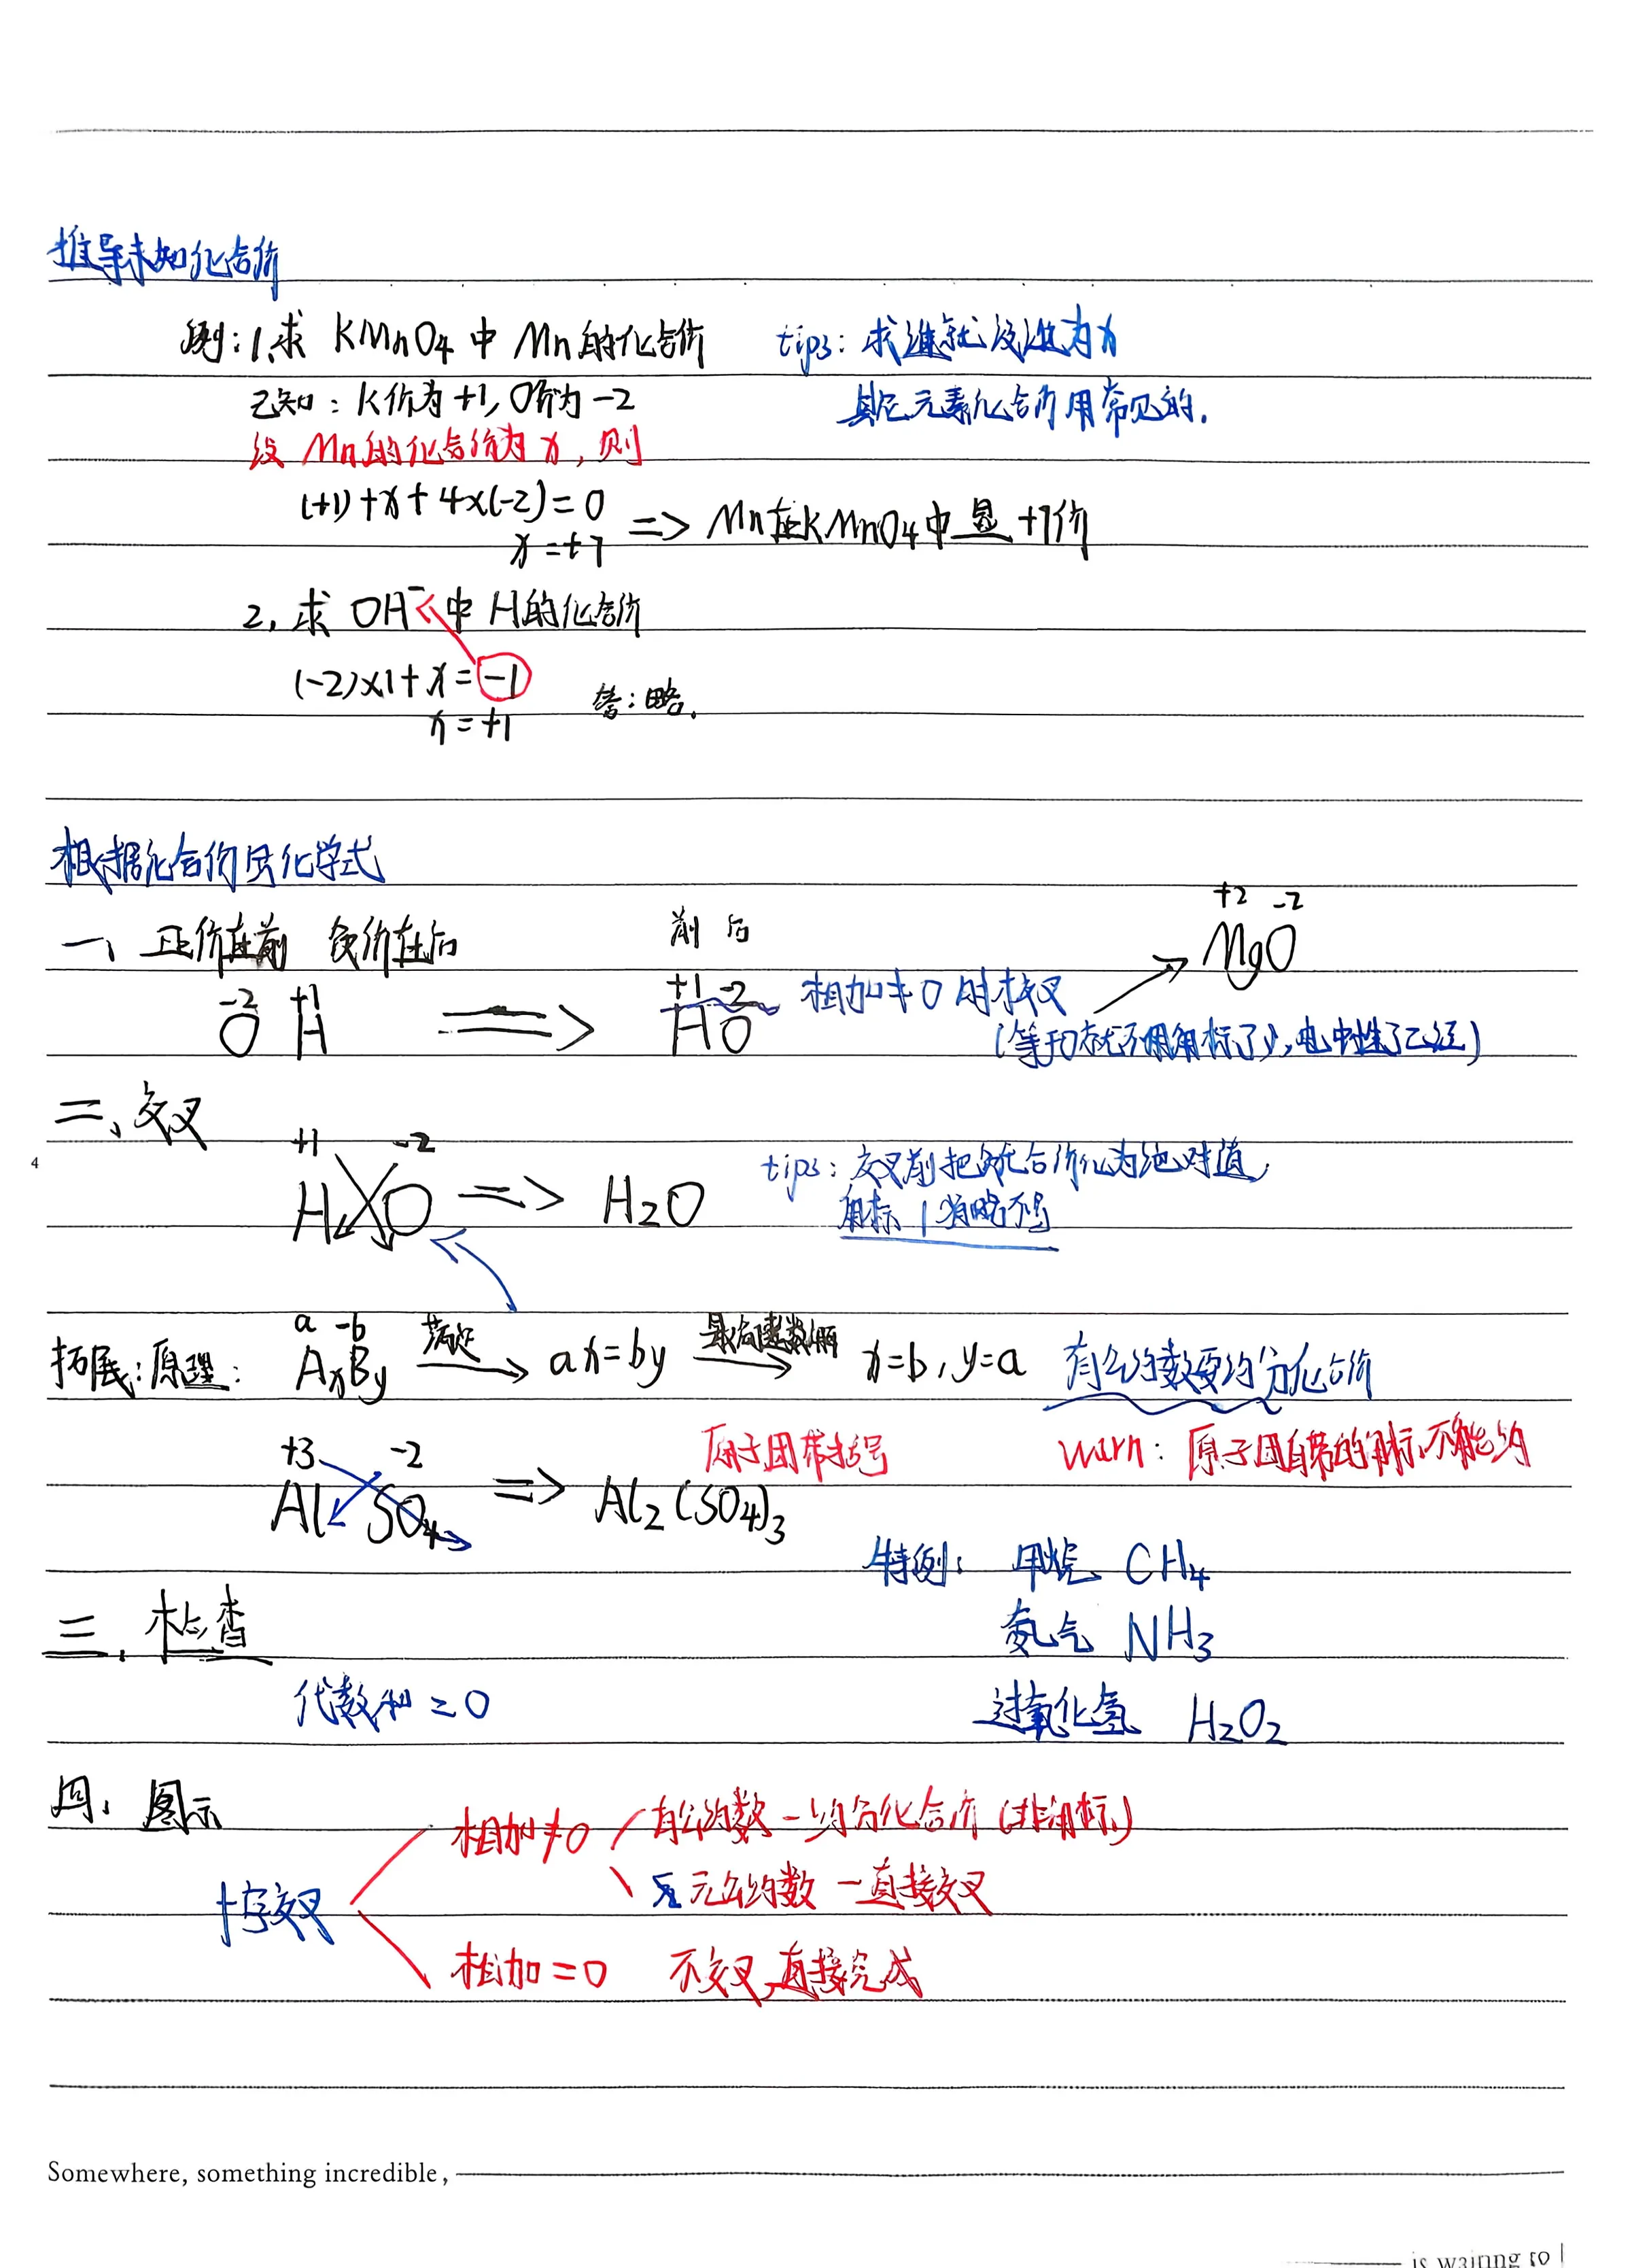 推导未知化合价
例:1.求 KMnO₄ 中 Mn的化合价 tips: 求谁就设谁为x
已知: K价为+1, O价为-2 其它元素化合价用常见的.
设 Mn的化合价为x, 则
(+1)+x+4×(-2)=0
x=+7 => Mn在KMnO₄中显+7价
2, 求 OH⁻ 中 H的化合价
(-2)×1+x=-1
x=+1 答:略.
根据化合价写化学式
+2 -2
一、正价在前 负价在后 前 后 MgO
-2 +1 +1 -2 相加≠0时才交叉
O H => H O (等于0就不用角标了, 电中性了已经)
二、交叉
+1 -2 tips: 交叉前把化合价化为绝对值,
H O => H₂O 角标 1 省略不写
a -b 满足
拓展:原理: AxBy → ax=by → x=b, y=a 有公约数要约分化合价
+3 -2 原子团带括号 warn: 原子团自带的角标不能约
Al SO₄ => Al₂(SO₄)₃
特例: 甲烷 CH₄
三、检查 氨气 NH₃
代数和=0 过氧化氢 H₂O₂
四、图示
相加≠0 有公约数-约分化合价(非角标)
十字交叉 无公约数-直接交叉
相加=0 不交叉,直接完成
4
Somewhere, something incredible,
is waiting to